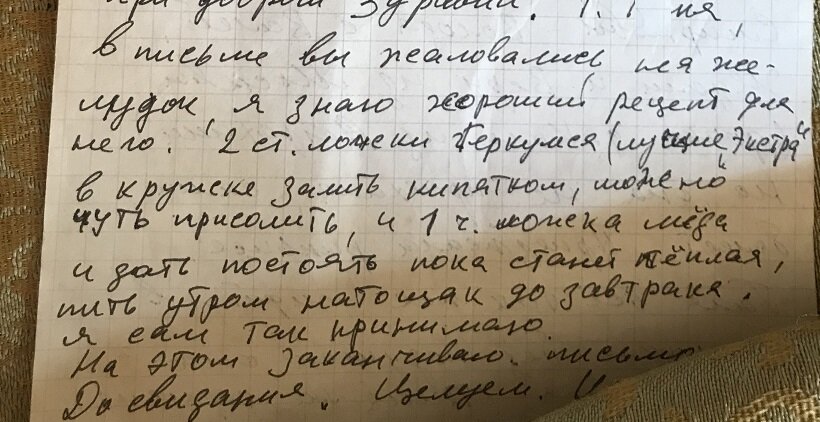 при добром здравии.
в письме вы жаловались на же-
лудок, я знаю хороший рецепт для
него. 2 ст. ложки Геркулеса (лучше „Экстра“
в кружке залить кипятком, можно
чуть присолить, и 1 ч. ложка мёда
и дать постоять пока станет тёплая,
пить утром натощак до завтрака.
я сам так принимаю.
На этом заканчиваю письмо
До свидания. Целуем.